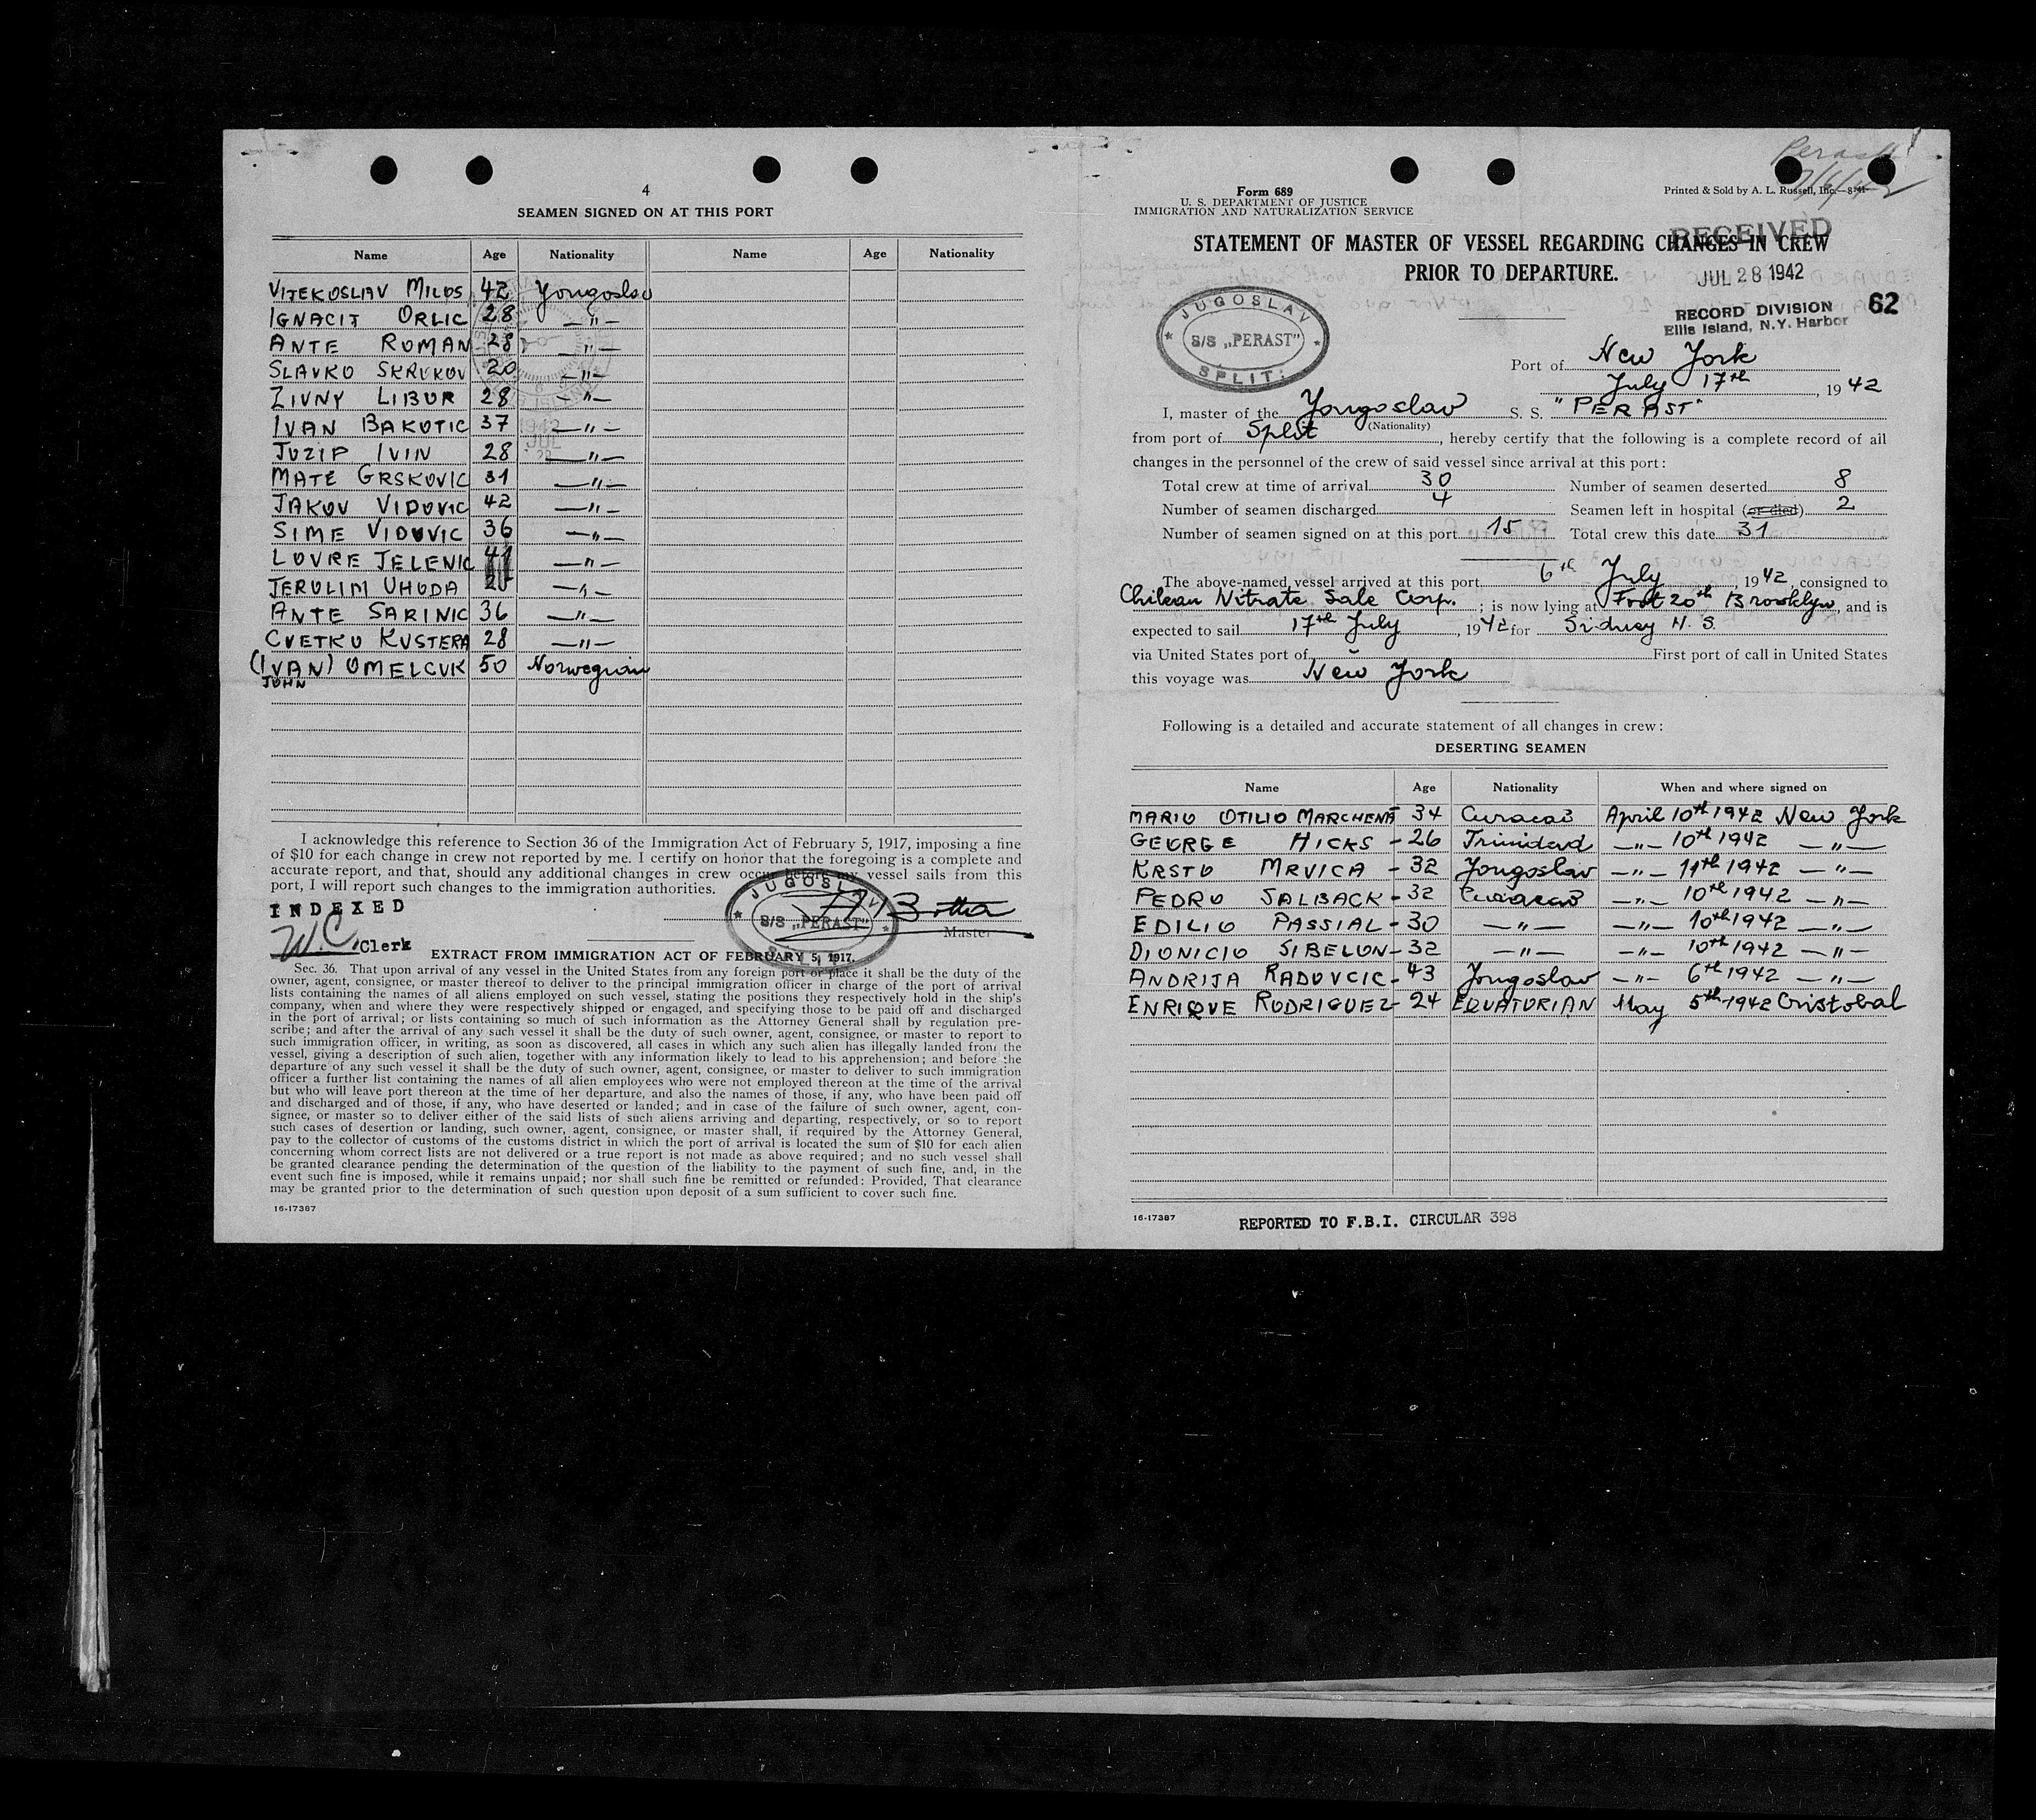 4
SEAMEN SIGNED ON AT THIS PORT
Name Age Nationality Name Age Nationality
VIJEKOSLAV MILOS 42 Yougoslav
IGNACIT ORLIC 28 —"—
ANTE ROMAN 28 —"—
SLAVKO SKRVKOV 20 —"—
ZIVNY LIBOR 28 —"—
IVAN BAKOTIC 37 —"—
JOZIP IVIN 28 —"—
MATE GRSKOVIC 31 —"—
JAKOV VIDOVIC 42 —"—
SIME VIDOVIC 36 —"—
LOVRE JELENIC 41 —"—
JEROLIM UHODA —"—
ANTE SARINIC 36 —"—
CVETKO KUSTERA 28 —"—
(IVAN) OMELCUK 50 Norwegian
JOHN
I acknowledge this reference to Section 36 of the Immigration Act of February 5, 1917, imposing a fine
of $10 for each change in crew not reported by me. I certify on honor that the foregoing is a complete and
accurate report, and that, should any additional changes in crew occur before my vessel sails from this
port, I will report such changes to the immigration authorities.
JUGOSLAV
S/S „PERAST"
SPLIT
INDEXED
W.C. Clerk
Master
EXTRACT FROM IMMIGRATION ACT OF FEBRUARY 5, 1917.
Sec. 36. That upon arrival of any vessel in the United States from any foreign port or place it shall be the duty of the
owner, agent, consignee, or master thereof to deliver to the principal immigration officer in charge of the port of arrival
lists containing the names of all aliens employed on such vessel, stating the positions they respectively hold in the ship's
company, when and where they were respectively shipped or engaged, and specifying those to be paid off and discharged
in the port of arrival; or lists containing so much of such information as the Attorney General shall by regulation pre-
scribe; and after the arrival of any such vessel it shall be the duty of such owner, agent, consignee, or master to report to
such immigration officer, in writing, as soon as discovered, all cases in which any such alien has illegally landed from the
vessel, giving a description of such alien, together with any information likely to lead to his apprehension; and before the
departure of any such vessel it shall be the duty of such owner, agent, consignee, or master to deliver to such immigration
officer a further list containing the names of all alien employees who were not employed thereon at the time of the arrival
but who will leave port thereon at the time of her departure, and also the names of those, if any, who have been paid off
and discharged and of those, if any, who have deserted or landed; and in case of the failure of such owner, agent, con-
signee, or master so to deliver either of the said lists of such aliens arriving and departing, respectively, or so to report
such cases of desertion or landing, such owner, agent, consignee, or master shall, if required by the Attorney General,
pay to the collector of customs of the customs district in which the port of arrival is located the sum of $10 for each alien
concerning whom correct lists are not delivered or a true report is not made as above required; and no such vessel shall
be granted clearance pending the determination of the question of the liability to the payment of such fine, and, in the
event such fine is imposed, while it remains unpaid; nor shall such fine be remitted or refunded: Provided, That clearance
may be granted prior to the determination of such question upon deposit of a sum sufficient to cover such fine.
16-17387
Perast
Form 689
U. S. DEPARTMENT OF JUSTICE
IMMIGRATION AND NATURALIZATION SERVICE
Printed & Sold by A. L. Russell, Inc.—8-41
RECEIVED
STATEMENT OF MASTER OF VESSEL REGARDING CHANGES IN CREW
PRIOR TO DEPARTURE.
JUL 28 1942
RECORD DIVISION
Ellis Island, N.Y. Harbor
62
JUGOSLAV
S/S „PERAST"
SPLIT
Port of New York
July 17th, 1942
I, master of the Yougoslav S. S. "PERAST"
(Nationality)
from port of Split, hereby certify that the following is a complete record of all
changes in the personnel of the crew of said vessel since arrival at this port:
Total crew at time of arrival 30 Number of seamen deserted 8
Number of seamen discharged 4 Seamen left in hospital (or died) 2
Number of seamen signed on at this port 15 Total crew this date 31
The above-named vessel arrived at this port 6th July, 1942, consigned to
Chilean Nitrate Sale Corp.; is now lying at Foot 20th Brooklyn, and is
expected to sail 17th July, 1942 for Sidney N. S.
via United States port of First port of call in United States
this voyage was New York
Following is a detailed and accurate statement of all changes in crew:
DESERTING SEAMEN
Name Age Nationality When and where signed on
MARIO OTILIO MARCHENA 34 Curacao April 10th 1942 New York
GEORGE HICKS - 26 Trinidad —"— 10th 1942 —"—
KRSTO MRVICA - 32 Yougoslav —"— 11th 1942 —"—
PEDRO SALBACK - 32 Curacao —"— 10th 1942 —"—
EDILIO PASSIAL - 30 —"— —"— 10th 1942 —"—
DIONICIO SIBELON - 32 —"— —"— 10th 1942 —"—
ANDRIJA RADOVCIC - 43 Yougoslav —"— 6th 1942 —"—
ENRIQVE RODRIGUEZ - 24 EQUATORIAN May 5th 1942 Cristobal
16-17387
REPORTED TO F.B.I. CIRCULAR 398